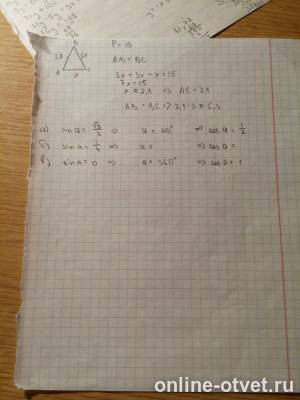 P = 15
B
3x 3x
A x C
AB = BC
3x + 3x + x = 15
7x = 15
x ≈ 2,1 ⇒ AC = 2,1
AB = BC = 2,1 · 3 ≈ 6,3
а) sin a = √3/2 ⇒ a = 60° ⇒ cos a = 1/2
б) sin a = 1/4 ⇒ a = ⇒ cos a =
в) sin a = 0 ⇒ a = 360° ⇒ cos a = 1
online-otvet.ru